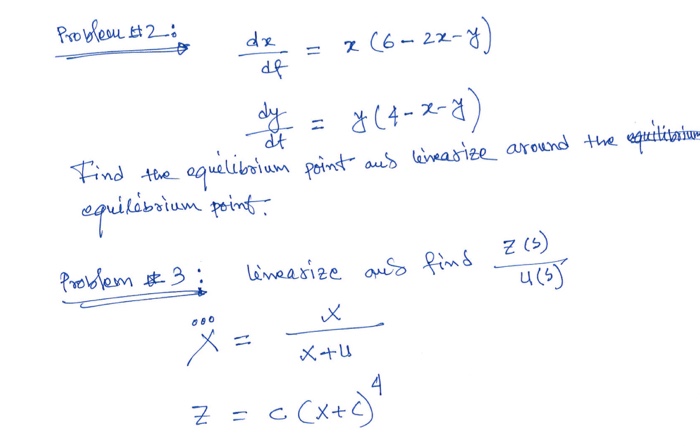 Problem #2:
dx/dt = x (6 - 2x - y)
dy/dt = y (4 - x - y)
Find the equilibrium point and linearize around the equilibrium
equilibrium point.
Problem # 3: linearize and find Z(s)/U(s)
x⃛ = x/(x+u)
z = c (x+c)^4